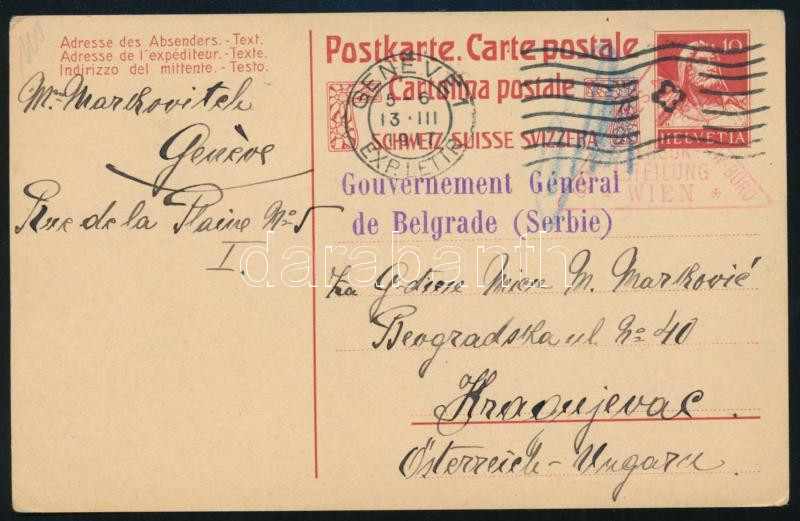 Adresse des Absenders. - Text.
Adresse de l'expéditeur. - Texte.
Indirizzo del mittente. - Testo.
Postkarte. Carte postale
Cartolina postale
SCHWEIZ SUISSE SVIZZERA
10
HELVETIA
GENÈVE 1
5-6
13·III
1917
EXP. LETTR.
Gouvernement Général
de Belgrade (Serbie)
WIEN
Markovitch
Genève
Rue de la Plaine No 5
I.
za M. Marković
Beogradska ul. No 40
Kragujevac.
Österreich-Ungarn
darabanth